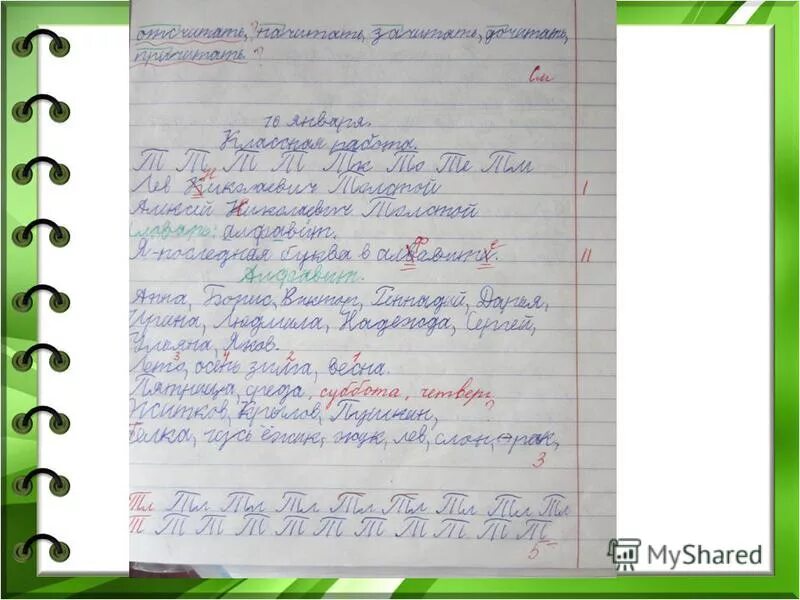 отсчитать,? насчитать, засчитать, досчитать,
присчитать.?
См
16 января.
Классная работа.
Т Т Т Т Тк То Те Тм
Лев Николаевич Толстой
I
Алексей Николаевич Толстой
Словарь: алфавит.
Я-последная буква в алфавите.
II
Алфавит.
Анна, Борис, Виктор, Геннадий, Дарья,
Ирина, Людмила, Надежода, Сергей,
Ульяна, Яков.
3 4 2 1
Лето, осень зима, весна.
Пятница, среда, суббота, четверг
Житков, Крылов, Пушкин,?
белка, гусь ёжик, жук, лев, слон, рак,
3
Тл Тл Тл Тл Тл Тл Тл Тл Тл
Т Т Т Т Т Т Т Т Т Т Т
5
MyShared